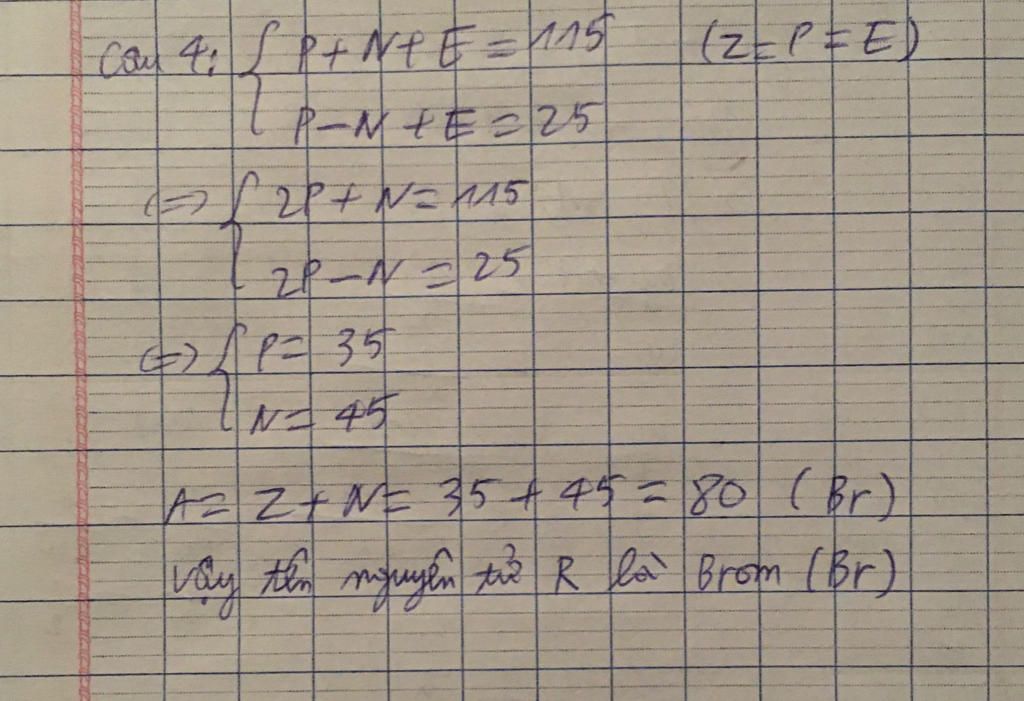 Câu 4: { P+N+E = 115 (Z=P=E)
P-N+E = 25
<=> { 2P+N = 115
2P-N = 25
<=> { P = 35
N = 45
A = Z+N = 35+45 = 80 (Br)
Vậy tên nguyên tử R là Brom (Br)